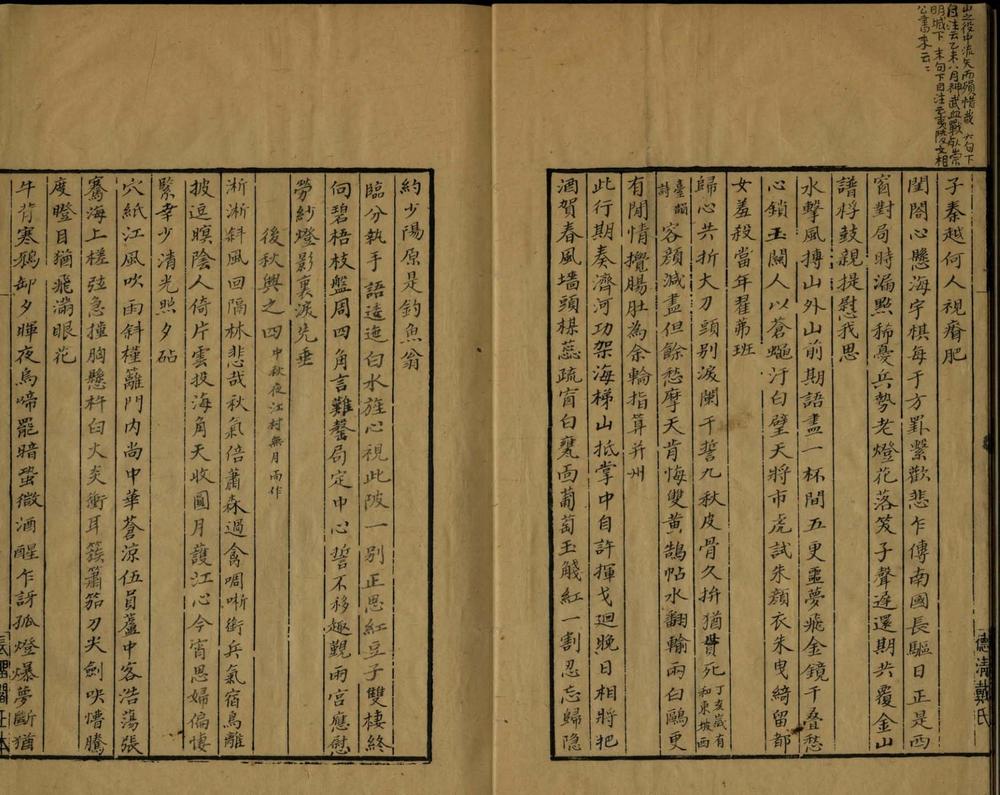 山之役中流矢而殞惜哉 六句下
自注云乙未八月神武血戰死崇
明城下 末句下自注云夷陵文相
公書來云云
子秦越何人視瘠肥
閨閤心懸海宇棋每于方罫繫歡悲乍傳南國長驅日正是西
窗對局時漏點稀憂兵勢老燈花落笈子聲遲還期共覆金山
譜桴鼓親提慰我思
水擊風摶山外山前期語盡一杯間五更噩夢飛金鏡千疊愁
心鎖玉關人以蒼蠅汙白璧天將市虎試朱顏衣朱曳綺留都
女羞殺當年翟茀班
歸心共折大刀頭別淚闌干誓九秋皮骨久拚猶貰死丁亥歲有和東坡西
臺韻詩容顏減盡但餘愁摩天肯悔雙黃鵠帖水翻輸兩白鷗更
有閒情攪腸肚為余輪指算并州
此行期奏濟河功架海梯山抵掌中自許揮戈迴晚日相將把
酒賀春風墻頭楳蕊疏窗白甕面葡萄玉紅一割忍忘歸隱
德清戴氏
約少陽原是釣魚翁
臨分執手語逶迤白水旌心視此陂一別正思紅豆子雙棲終
向碧梧枝盤周四角言難罄局定中心誓不移趣覲兩宮應慰
勞紗燈影裏淚先垂
後秋興之四中秋夜江村無月而作
淅淅斜風回隔林悲哉秋氣倍蕭森過禽啁哳銜兵氣宿鳥離
披逗暝陰人倚片雲投海角天收圓月護江心今宵思婦偏悽
緊幸少清光照夕砧
穴紙江風吹雨斜槿籬門內尚中華蒼涼伍員蘆中客浩蕩張
騫海上槎弦急撞胸懸杵臼火炎衝耳簇簫笳刀尖劍吷憯騰
度瞪目猶飛滿眼花
牛背寒鴉卸夕暉夜烏啼罷暗蛩微酒醒乍訝孤燈爆夢斷猶